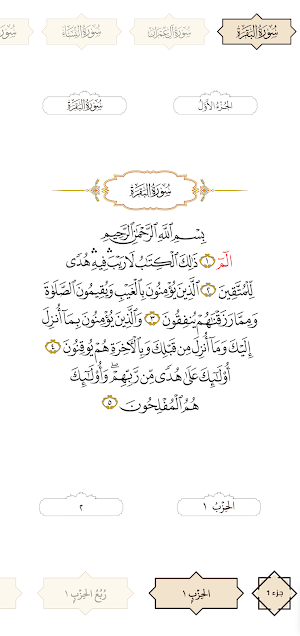 سُورَةُ البَقَرَةِ سُورَةُ آلِ عِمۡرَانَ سُورَةُ النِّسَاءِ
الجُزءُ الأَوَّلُ سُورَةُ البَقَرَةِ
سُورَةُ البَقَرَةِ
بِسۡمِ ٱللَّهِ ٱلرَّحۡمَٰنِ ٱلرَّحِيمِ
الٓمٓ ١ ذَٰلِكَ ٱلۡكِتَٰبُ لَا رَيۡبَۛ فِيهِۛ هُدٗى
لِّلۡمُتَّقِينَ ٢ ٱلَّذِينَ يُؤۡمِنُونَ بِٱلۡغَيۡبِ وَيُقِيمُونَ ٱلصَّلَوٰةَ
وَمِمَّا رَزَقۡنَٰهُمۡ يُنفِقُونَ ٣ وَٱلَّذِينَ يُؤۡمِنُونَ بِمَآ أُنزِلَ
إِلَيۡكَ وَمَآ أُنزِلَ مِن قَبۡلِكَ وَبِٱلۡأٓخِرَةِ هُمۡ يُوقِنُونَ ٤
أُوْلَٰٓئِكَ عَلَىٰ هُدٗى مِّن رَّبِّهِمۡۖ وَأُوْلَٰٓئِكَ
هُمُ ٱلۡمُفۡلِحُونَ ٥
الحِزۡبُ ١ ٢
جزء ١ الحِزْبُ ١ رُبُعُ الحِزْبِ ١